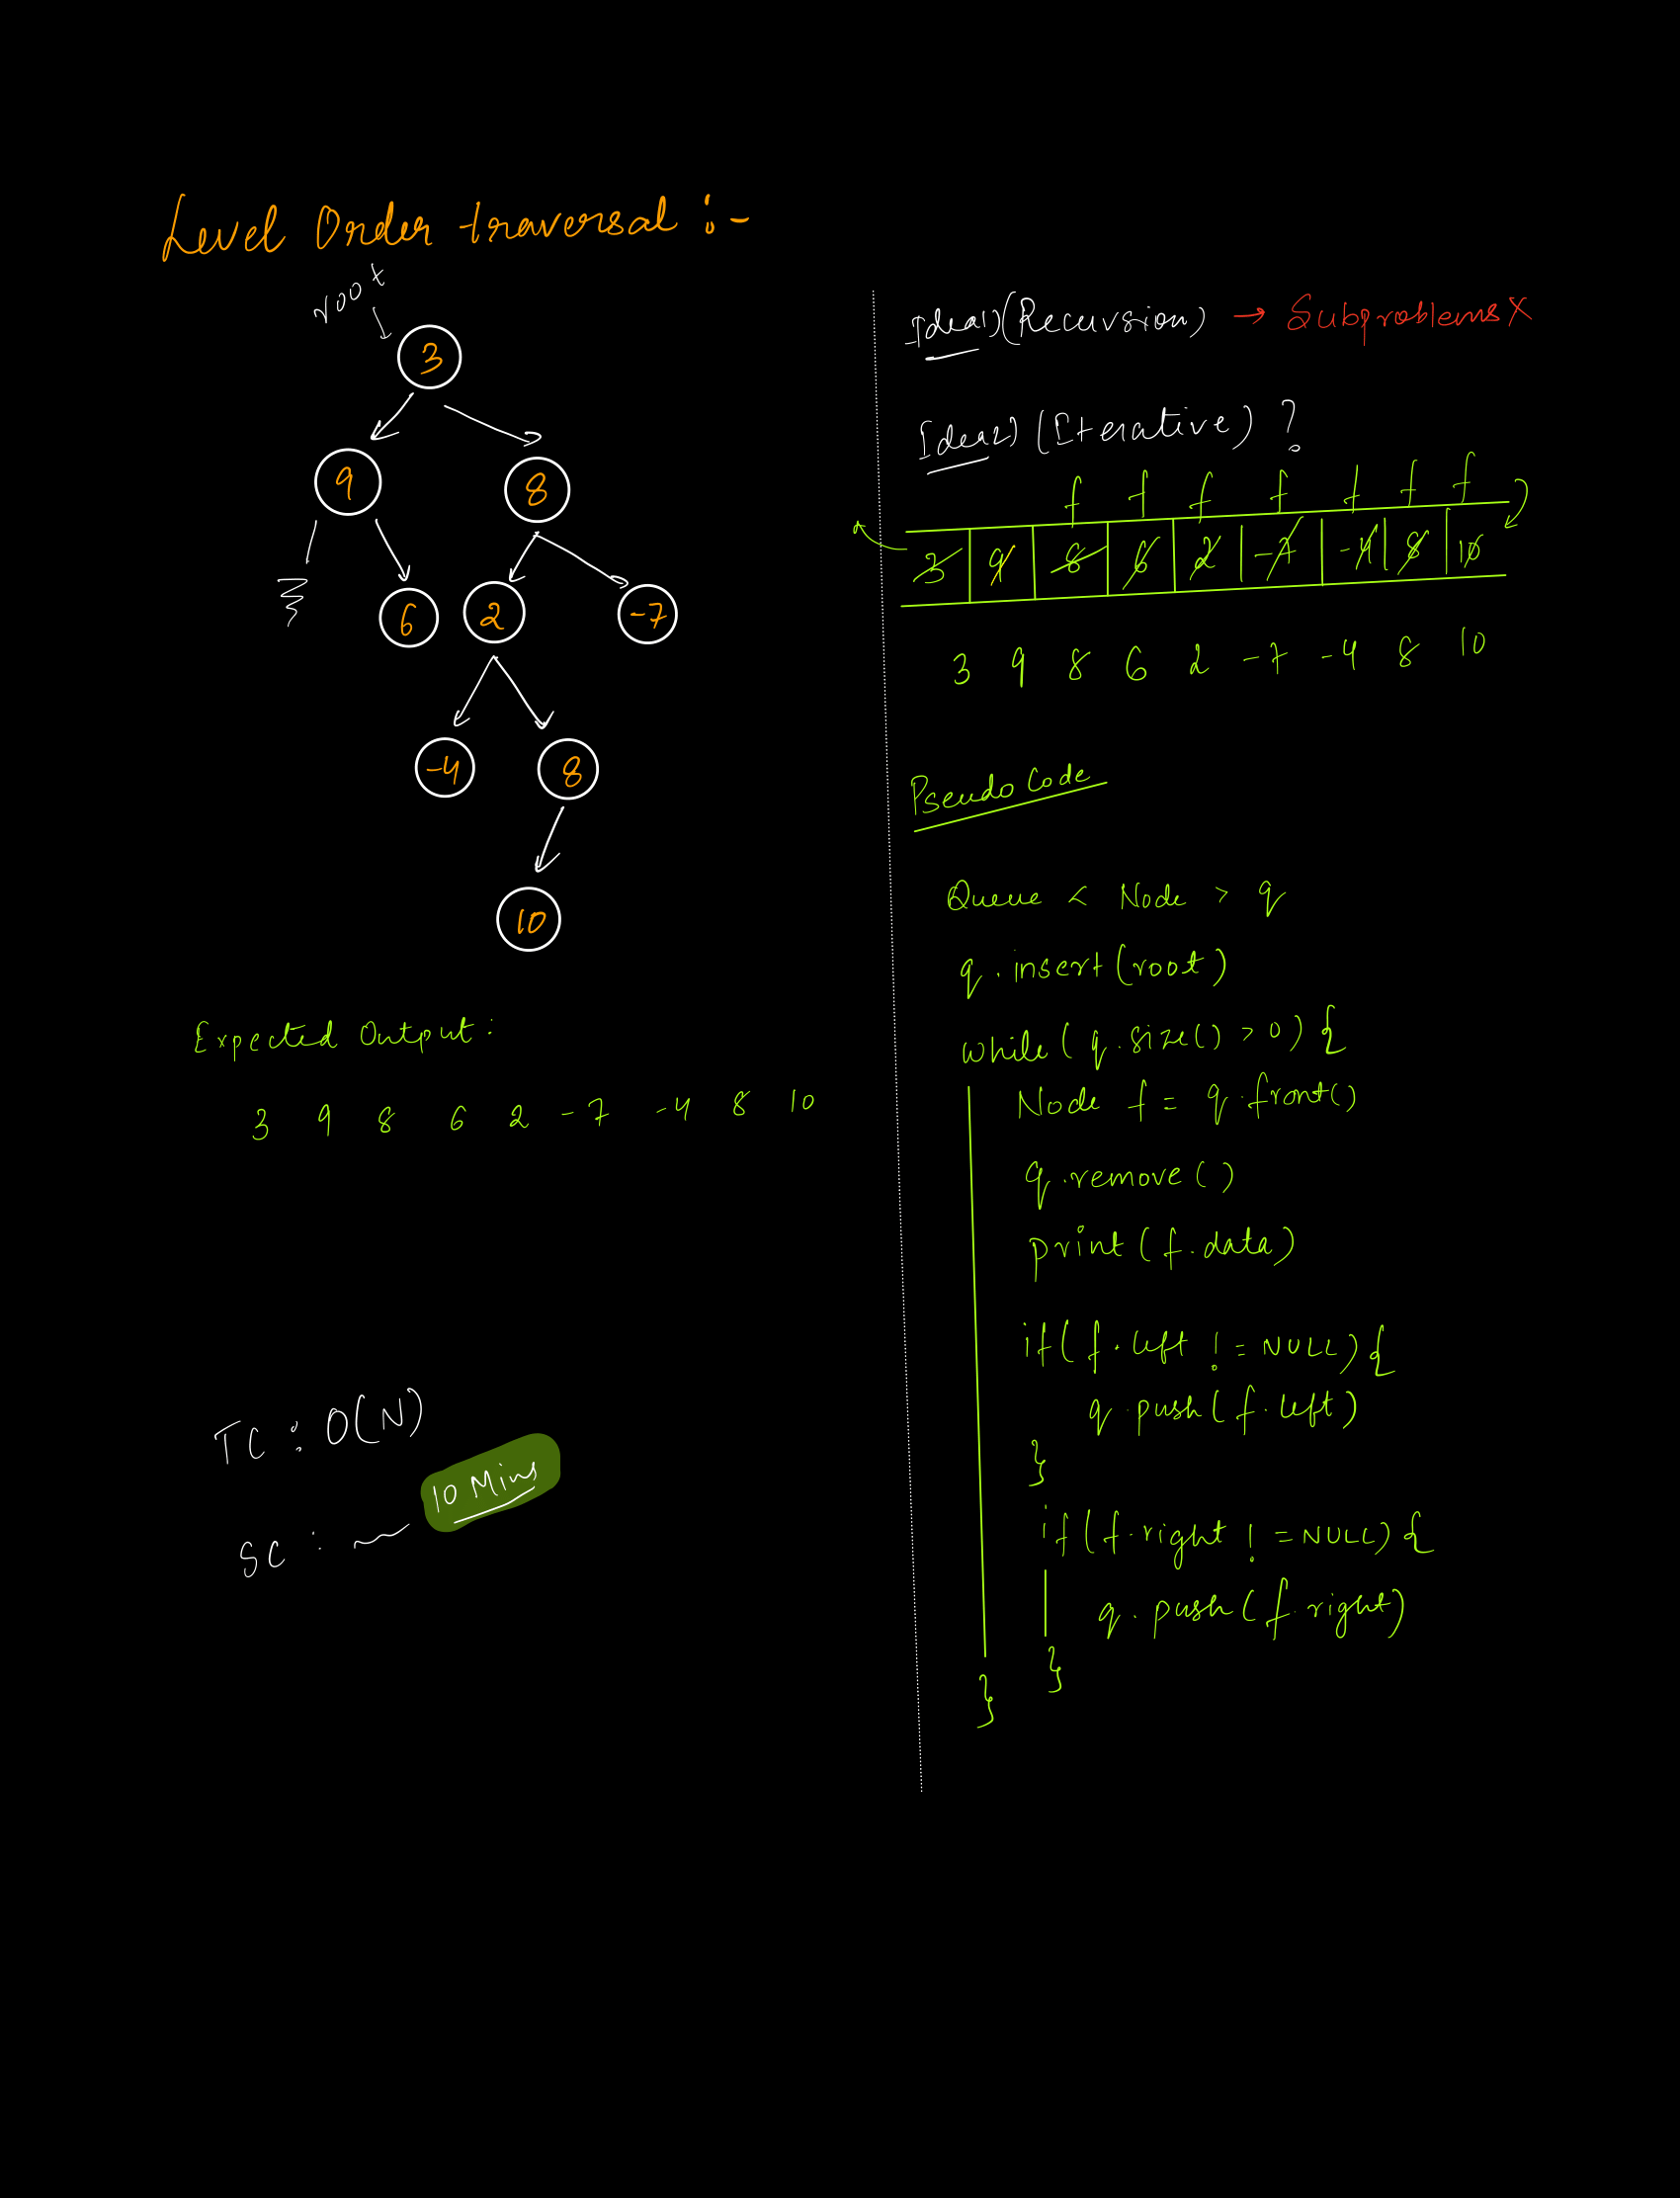 Level Order traversal :-
root
3
9 8
6 2 -7
-4 8
10
Expected Output :
3 9 8 6 2 -7 -4 8 10
TC : O(N)
SC : 10 Mins
Idea1) (Recursion) → Subproblems X
Idea2) (Iterative) ?
f f f f f f f
3 9 8 6 2 -7 -4 8 10
3 9 8 6 2 -7 -4 8 10
Pseudo Code
Queue < Node > q
q.insert(root)
while ( q.size() > 0) {
Node f = q.front()
q.remove()
print(f.data)
if(f.left != NULL) {
q.push(f.left)
}
if(f.right != NULL) {
q.push(f.right)
}
}